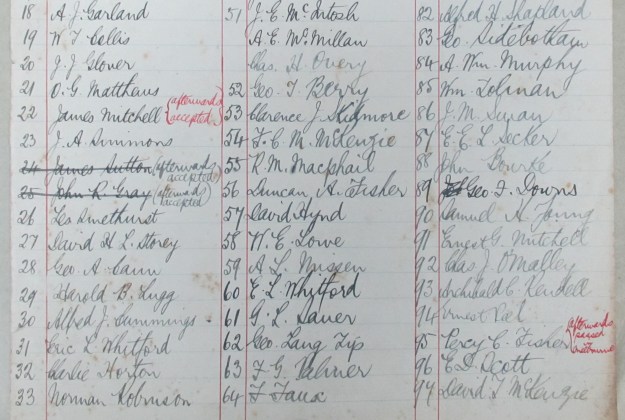 18 A. J. Garland
19 W. T. Collis
20 J. J. Glover
21 O. G. Matthews
22 James Mitchell (afterwards accepted)
23 J. A. Simmons
24 James Sutton (afterwards accepted)
25 John R. Gray (afterwards accepted)
26 Leo Smethurst
27 David H. L. Storey
28 Geo. A. Cann
29 Harold B. Lugg
30 Alfred J. Cummings
31 Eric L. Whitford
32 Leslie Horton
33 Norman Robinson
51 J. E. McIntosh
A. E. McMillan
Chas. H. Overy
52 Geo. T. Berry
53 Clarence J. Skidmore
54 F. C. M. McKenzie
55 R. M. Macphail
56 Duncan A. Fisher
57 David Hynd
58 W. E. Lowe
59 A. L. Nissen
60 E. L. Whitford
61 G. L. Sauer
62 Geo. Lang Tip
63 F. G. Palmer
64 F. Faux
82 Alfred H. Shapland
83 Geo. Sidebottom
84 A. Wm. Murphy
85 Wm. Tolman
86 J. M. Swan
87 E. E. L. Secker
88 John Rourke
89 Geo. F. Downs
90 Samuel A. Young
91 Ernest G. Mitchell
92 Chas. J. O'Malley
93 Archibald C. Kendell
94 Ernest Peel
95 Percy C. Fisher (afterwards passed
96 E. D. Scott
97 David T. McKenzie